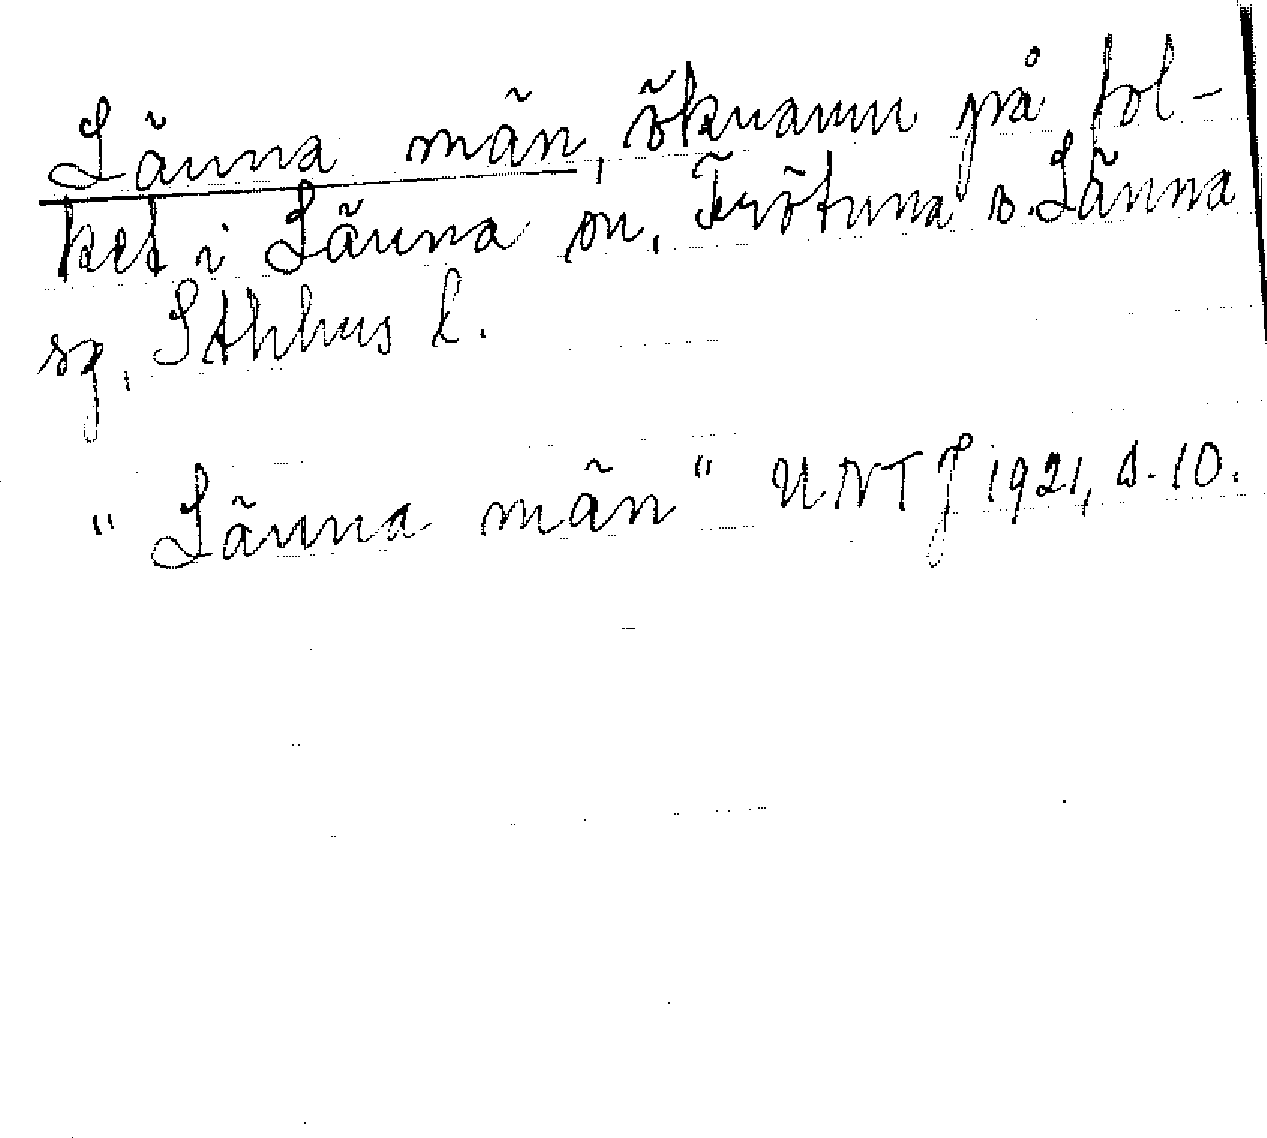 Länna män, öknamn på fol-
ket i Länna sn, Frötuna o. Länna
sg, Sthlms l.
"Länna män" UNTJ 1921, s. 10.